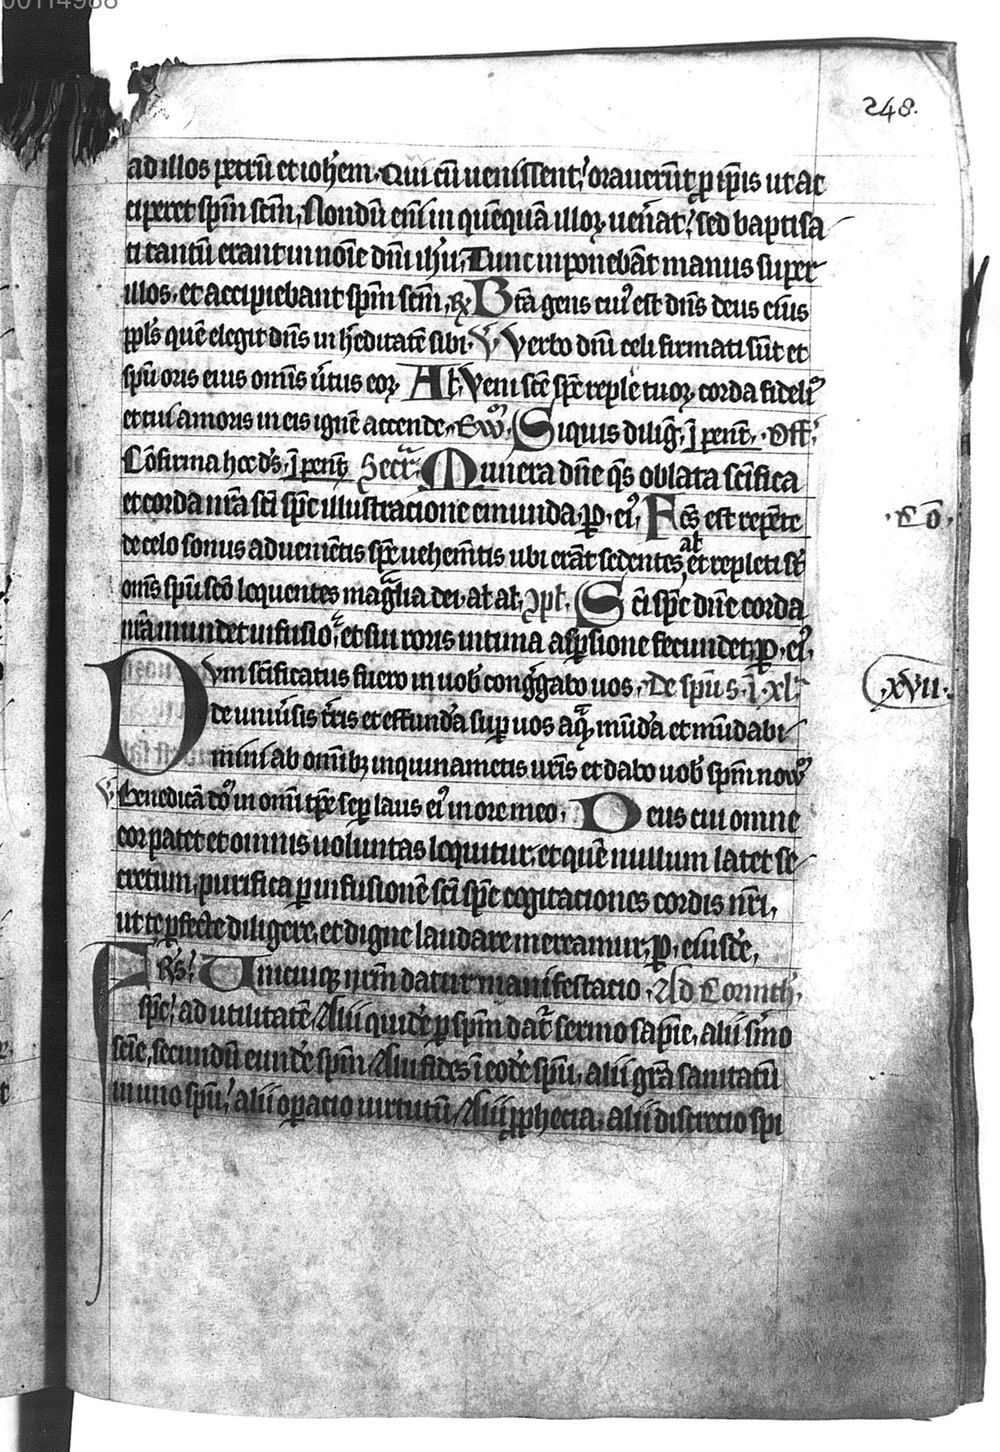 00114988
248.
ad illos petrū et ioh̄em. Qui cū uenissent, orauerūt ꝑ ip̄is ut ac
ciperet sp̄m sc̄m, Nondū eni̅ in quēquā illoꝝ uen̄at, sed baptisa
ti tantū erant in no̅ie dn̄i ih̄u, Tunc inponebāt manus super
illos, et accipiebant sp̄m sc̄m, ꝶ B̄ta gens cuiꝰ est dn̄s deus eius
ppl̄s quē elegit dn̄s in h̄editatē sibi. ℣ Verbo dn̄i celi firmati sūt et
sp̄u oris eius om̄is u̅tus eoꝝ Al̄. Veni sc̄e sp̄c reple tuoꝝ corda fideliū
et tui amoris in eis ignē accende, Siquis dilig̅. ī pent̄. Off̄.
Cōfirma hoc ds̄. ī pent̄. Secr̄. Munera dn̄e q̄s oblata sc̄ifica
et corda nr̄a sc̄i sp̄c illustracione emunda. ꝑ. eiꝰ. Fc̄s est repēte . Cō.
de celo sonus aduenientis sp̄c uehem̄tis ubi erāt sedentes, al̄ et repleti st̄
om̄s sp̄u sc̄o loquentes mag̅lia dei. al̄ al̄. ꝯpl̄. Sc̄i sp̄c dn̄e corda
nr̄a mundet infusio, et sui roris intima aspsione fecundet, ꝑ. eiꝰ.
Dum sc̄ificatus fuero in uob̄ cong̅gabo uos, De sp̄u s. ī. xl̄ xvii.
de uniu̅sis tr̄is et effundā sup uos aq̄ mūdā et mūdabi
mini ab om̄ibꝫ inquinam̄tis ur̄is et dabo uob̄ sp̄m nouū
℣ Benedicā dn̄o in om̄i tp̄e sep laus eiꝰ in ore meo, Deus cui omne
cor patet et omnis uoluntas loquitur, et quē nullum latet se
cretum, purifica ꝑ infusionē sc̄i sp̄c cogitaciones cordis nr̄i,
ut te ꝑfecte diligere, et digne laudare mereamur, ꝑ. eiusdē,
Fr̄s. Unicuiqꝫ nr̄m datur manifestacio Ad Corinth̄.
sp̄c, ad utilitatē, Alii quidē ꝑ sp̄m dat̄ sermo sapīe, alii s̄mo
scīe, secundū eundē sp̄m Alii fides ī eodē sp̄u, alii gr̄a sanitatū
in uno sp̄u, alii opacio uirtutū, Alii ꝓphecia, alii discrecio spi